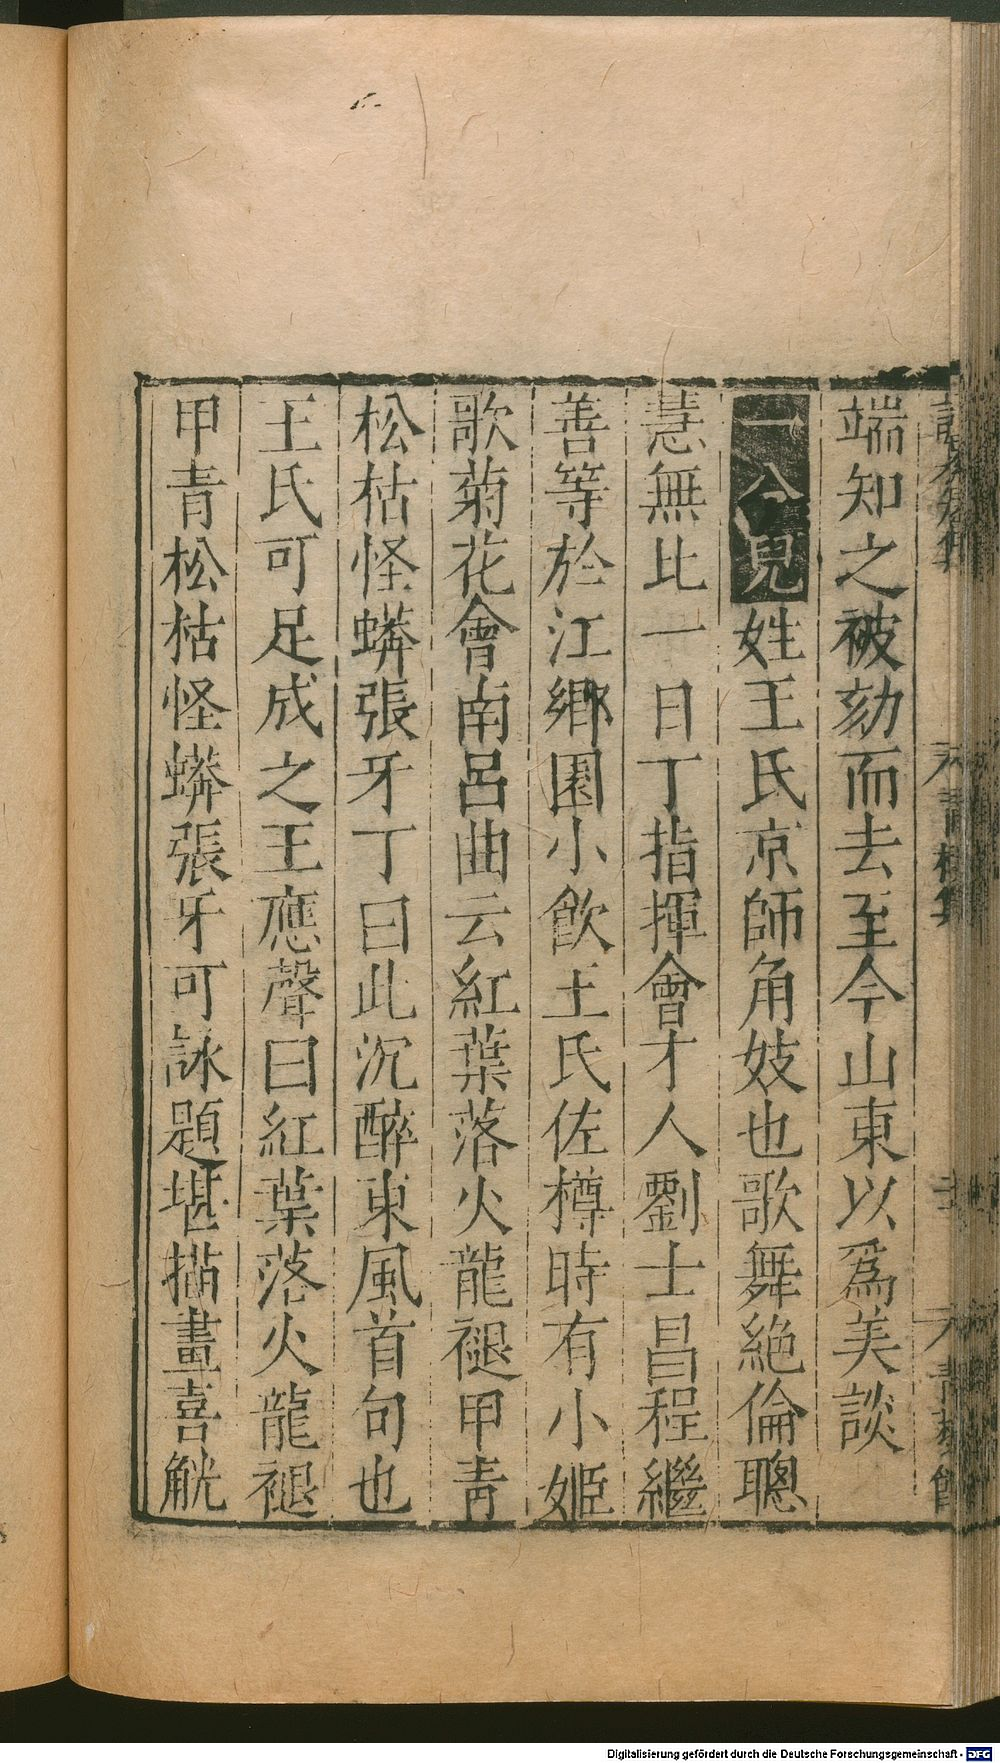 端知之被劾而去至今山東以爲美談
一分兒姓王氏京師角妓也歌舞絶倫聰
慧無比一日丁指揮會才人劉士昌程繼
善等於江郷園小飲王氏佐樽時有小姬
歌菊花會南呂曲云紅葉落火龍褪甲青
松枯怪蟒張牙丁曰此沉醉東風首句也
王氏可足成之王應聲曰紅葉落火龍褪
甲青松枯怪蟒張牙可詠題堪描畫喜觥
Digitalisierung gefördert durch die Deutsche Forschungsgemeinschaft - DFG